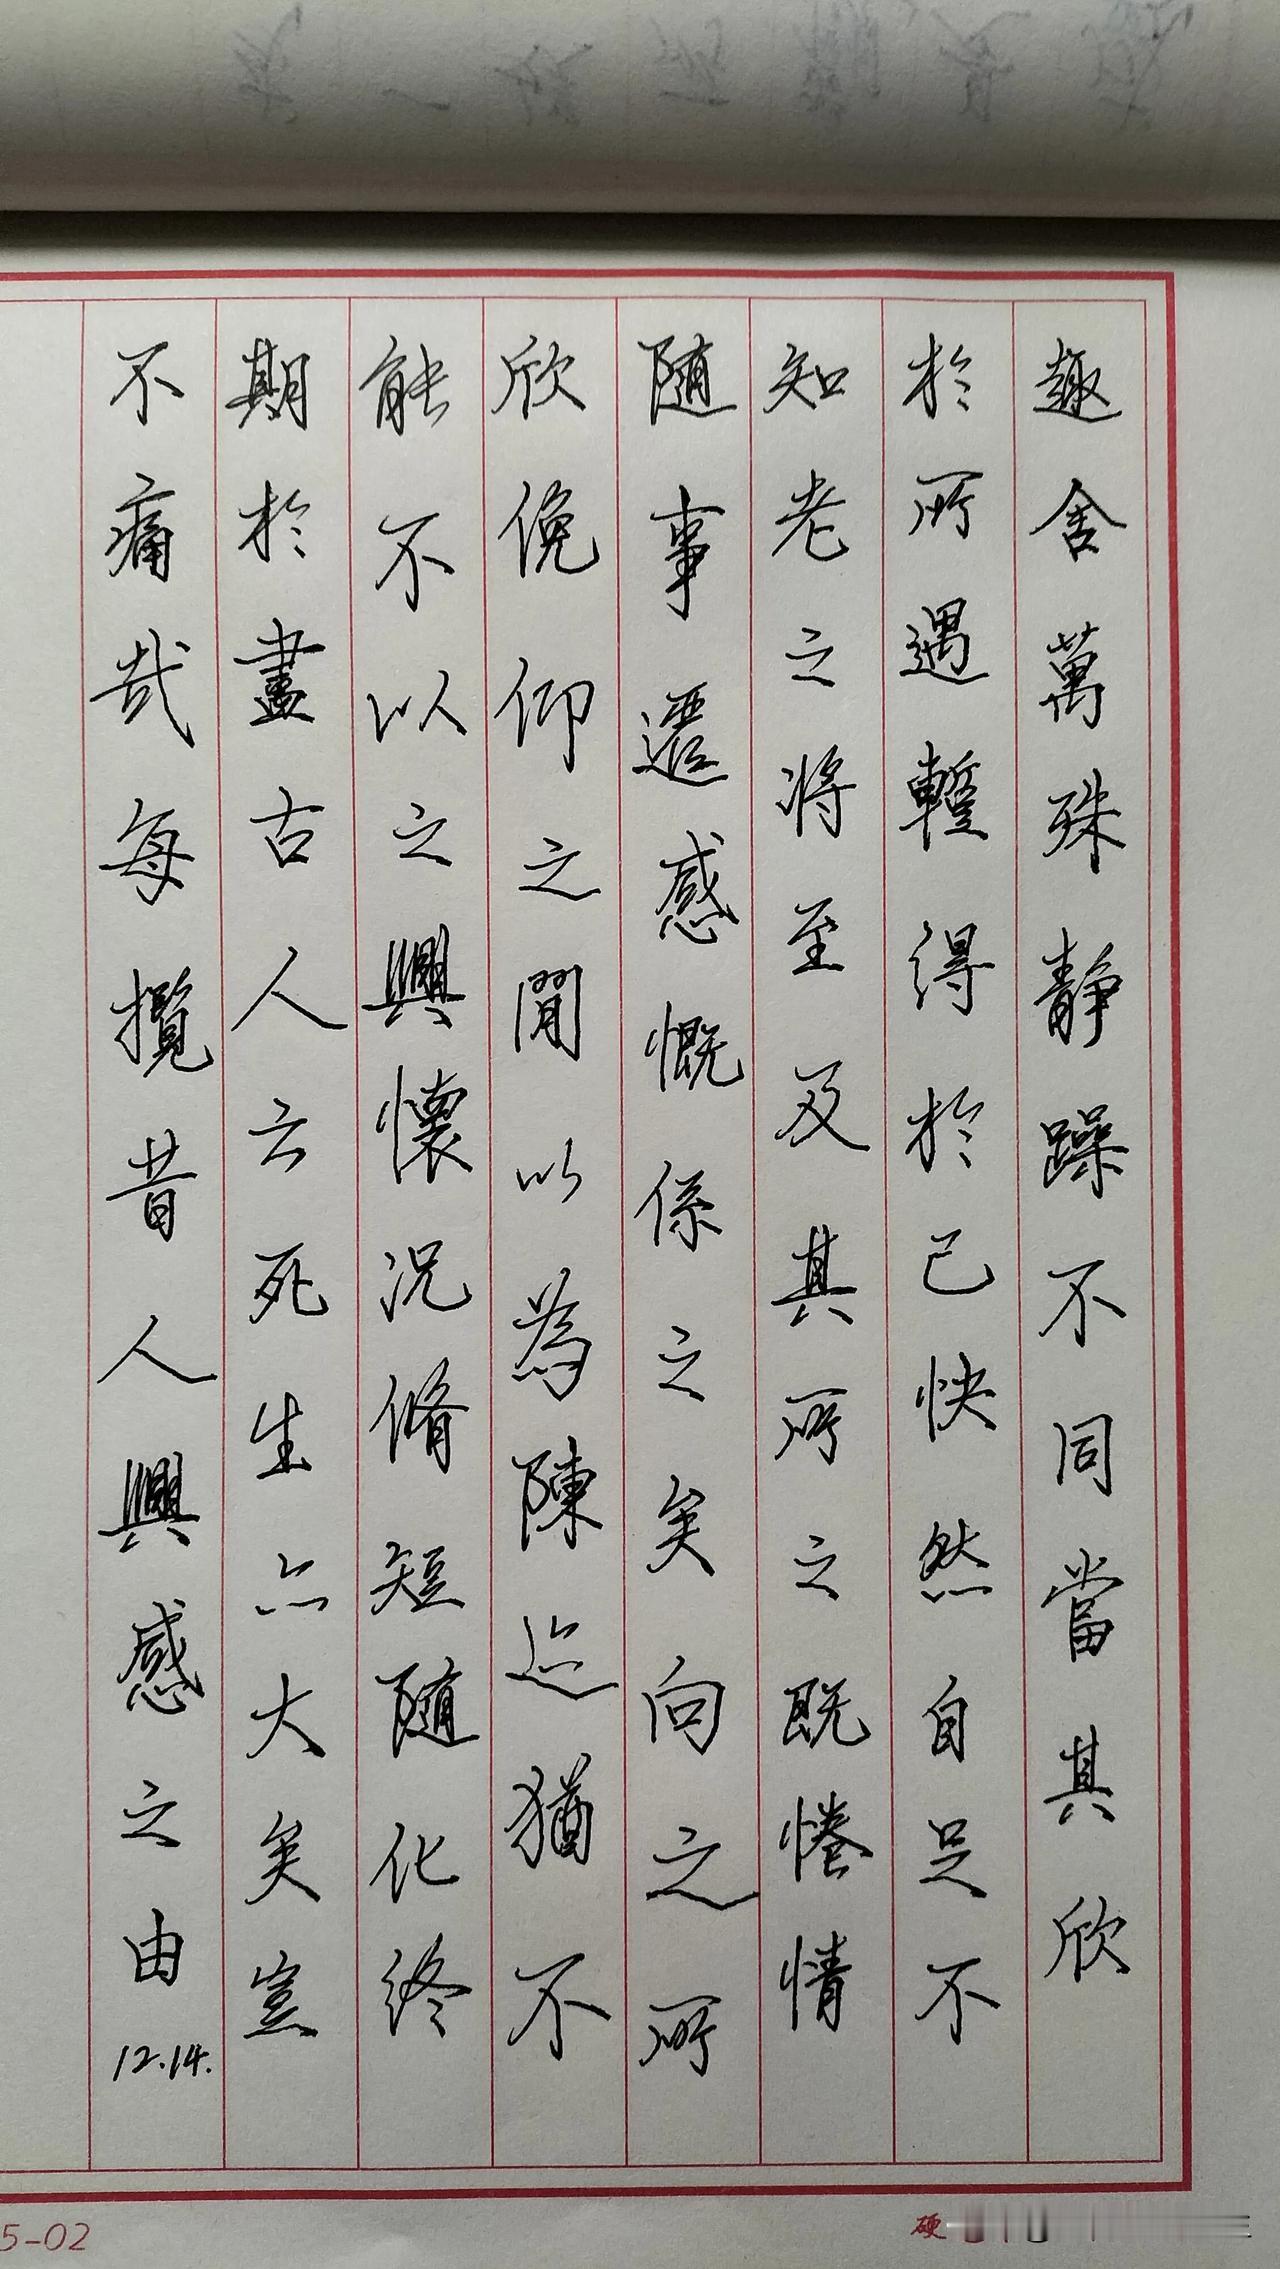 趣舍萬殊静躁不同當其欣
於所遇蹔得於己快然自足不
知老之将至及其所之既惓情
随事遷感慨係之矣向之所
欣俛仰之閒以為陳迹猶不
能不以之興懷況脩短随化終
期於盡古人云死生亦大矣豈
不痛哉每攬昔人興感之由
12.14.
5-02
硬